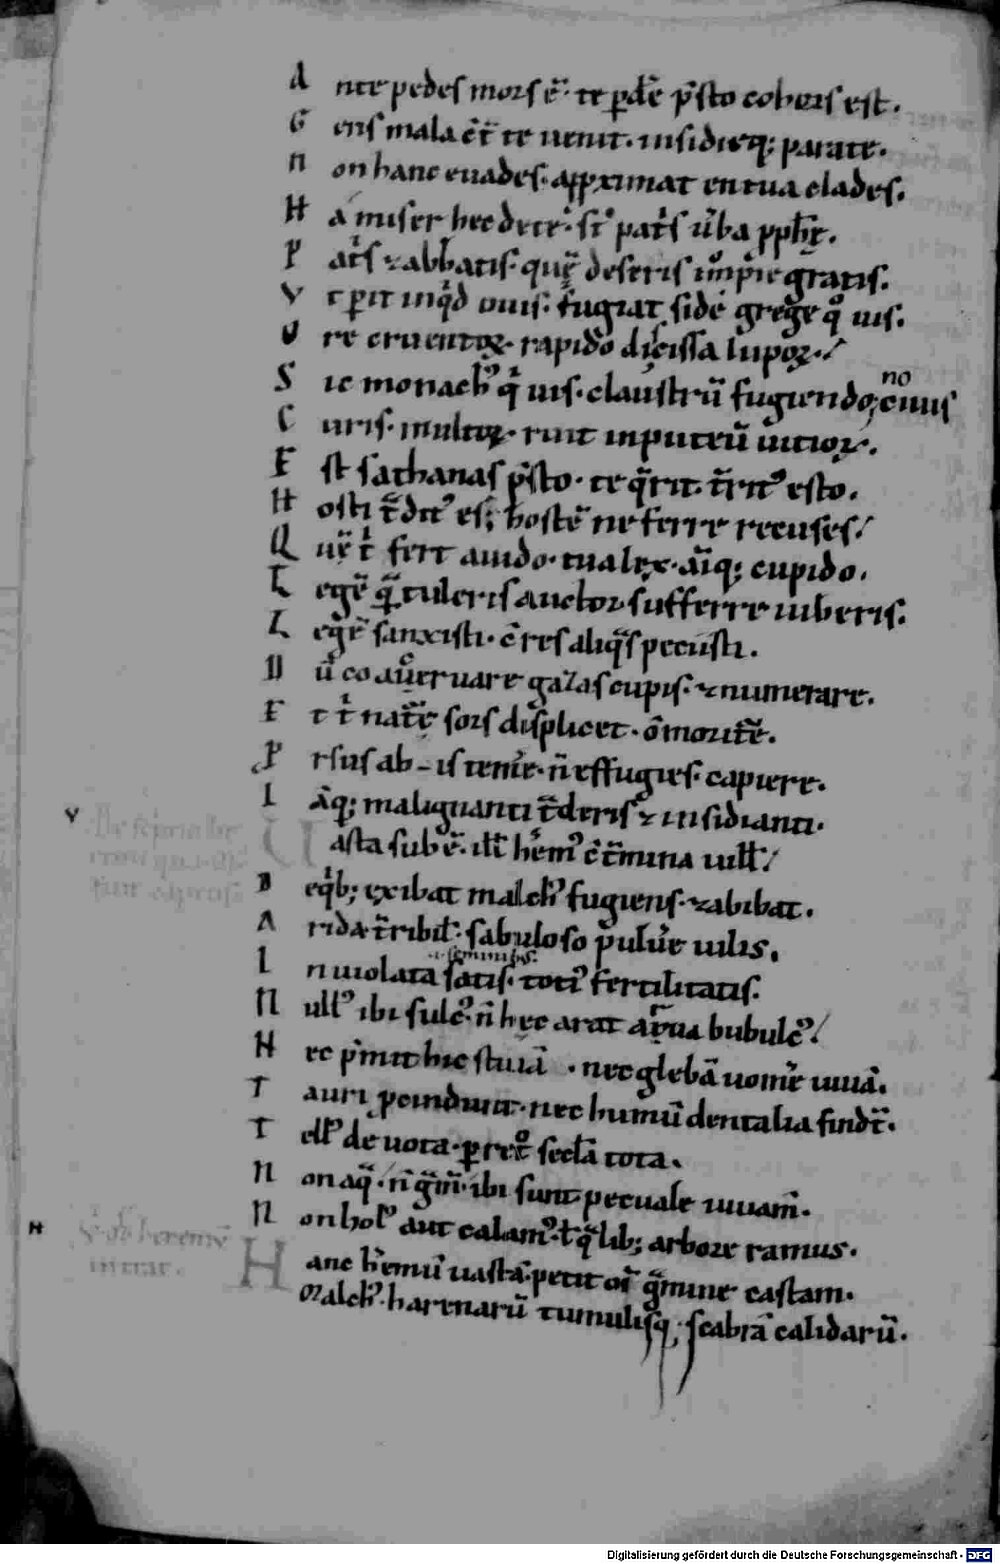 A nte pedes mors ē· te ꝑdẽ p̄sto cohors est.
G ens mala cͥt̄ te uenit· insidieq; parate.
N on hanc euades· aꝓximat en tua clades.
H a miser hec dece᷒· st᷒ pat͛s ũba ꝓph̄ę.
P at͛s ⁊ abbatis· quę̄ deseris gratis.
V t ꝑit inqͥd ouis· fugiat si de grege qͦ uis.
O re cruentoꝝ· rapido discissa lupoꝝ./
S ic monach᷒ qͥ uis· claustrū fugiendo, cıuıs
no
C uris· multoꝝ· ruit in puteū uitioꝝ.
E st sathanas p̄sto· te q̄rit· t̄rit᷒ esto.
H osti t̄dit᷒ es; hostē ne ferre recuses/
Q uę̄ tͥ fert auido· tua lęx· aīq; cupido.
L egē qͣ̄ tuleris auctor sufferre iuberis.
L egē sanxisti· c̄ res aliq̄s pecusti.
N ū co aūeruare gazas cupis· ⁊ numerare.
E t tͥ nat̄ę sors displicet· ō morit̄ę.
P rsus ab – is tem͛e· n̄ effugies· capiere.
I āq; malignanti t̄deris ⁊ insidianti·
V
U asta sub ē· ill̄ h͛em᷒ c̄ t̄mina uill̄/
B eqͥb; exibat malch᷒ fugiens· ⁊ abibat.
A rida t̄ribil᷒· sabuloso puluͤe uilis.
i· seminib᷒·
I n uiolata satis· toti᷒ fertilitatis.
N ull᷒ ibi sulc᷒· n̄ hęc arat arua bubulc᷒/
N ec p̄mit hic stiuā · nec glebā uom͛e uiuā.
T auri ꝓcindunt· nec humū dentalia findt̄.
T ell᷒ deuota· ꝑ tota.
N on aq̄· n̄ gͣm̄· ibi sunt pecuale iuuam̄.
N on hol᷒ aut calam᷒· t̵ qͣlib; arbore ramus.
N
intrat.
H anc h͛emū uastā· petit oī gͣmine castam.
Malch᷒· harenarū tumulisq; scabrā calidarū.
Digitalisierung gefördert durch die Deutsche Forschungsgemeinschaft - DFG